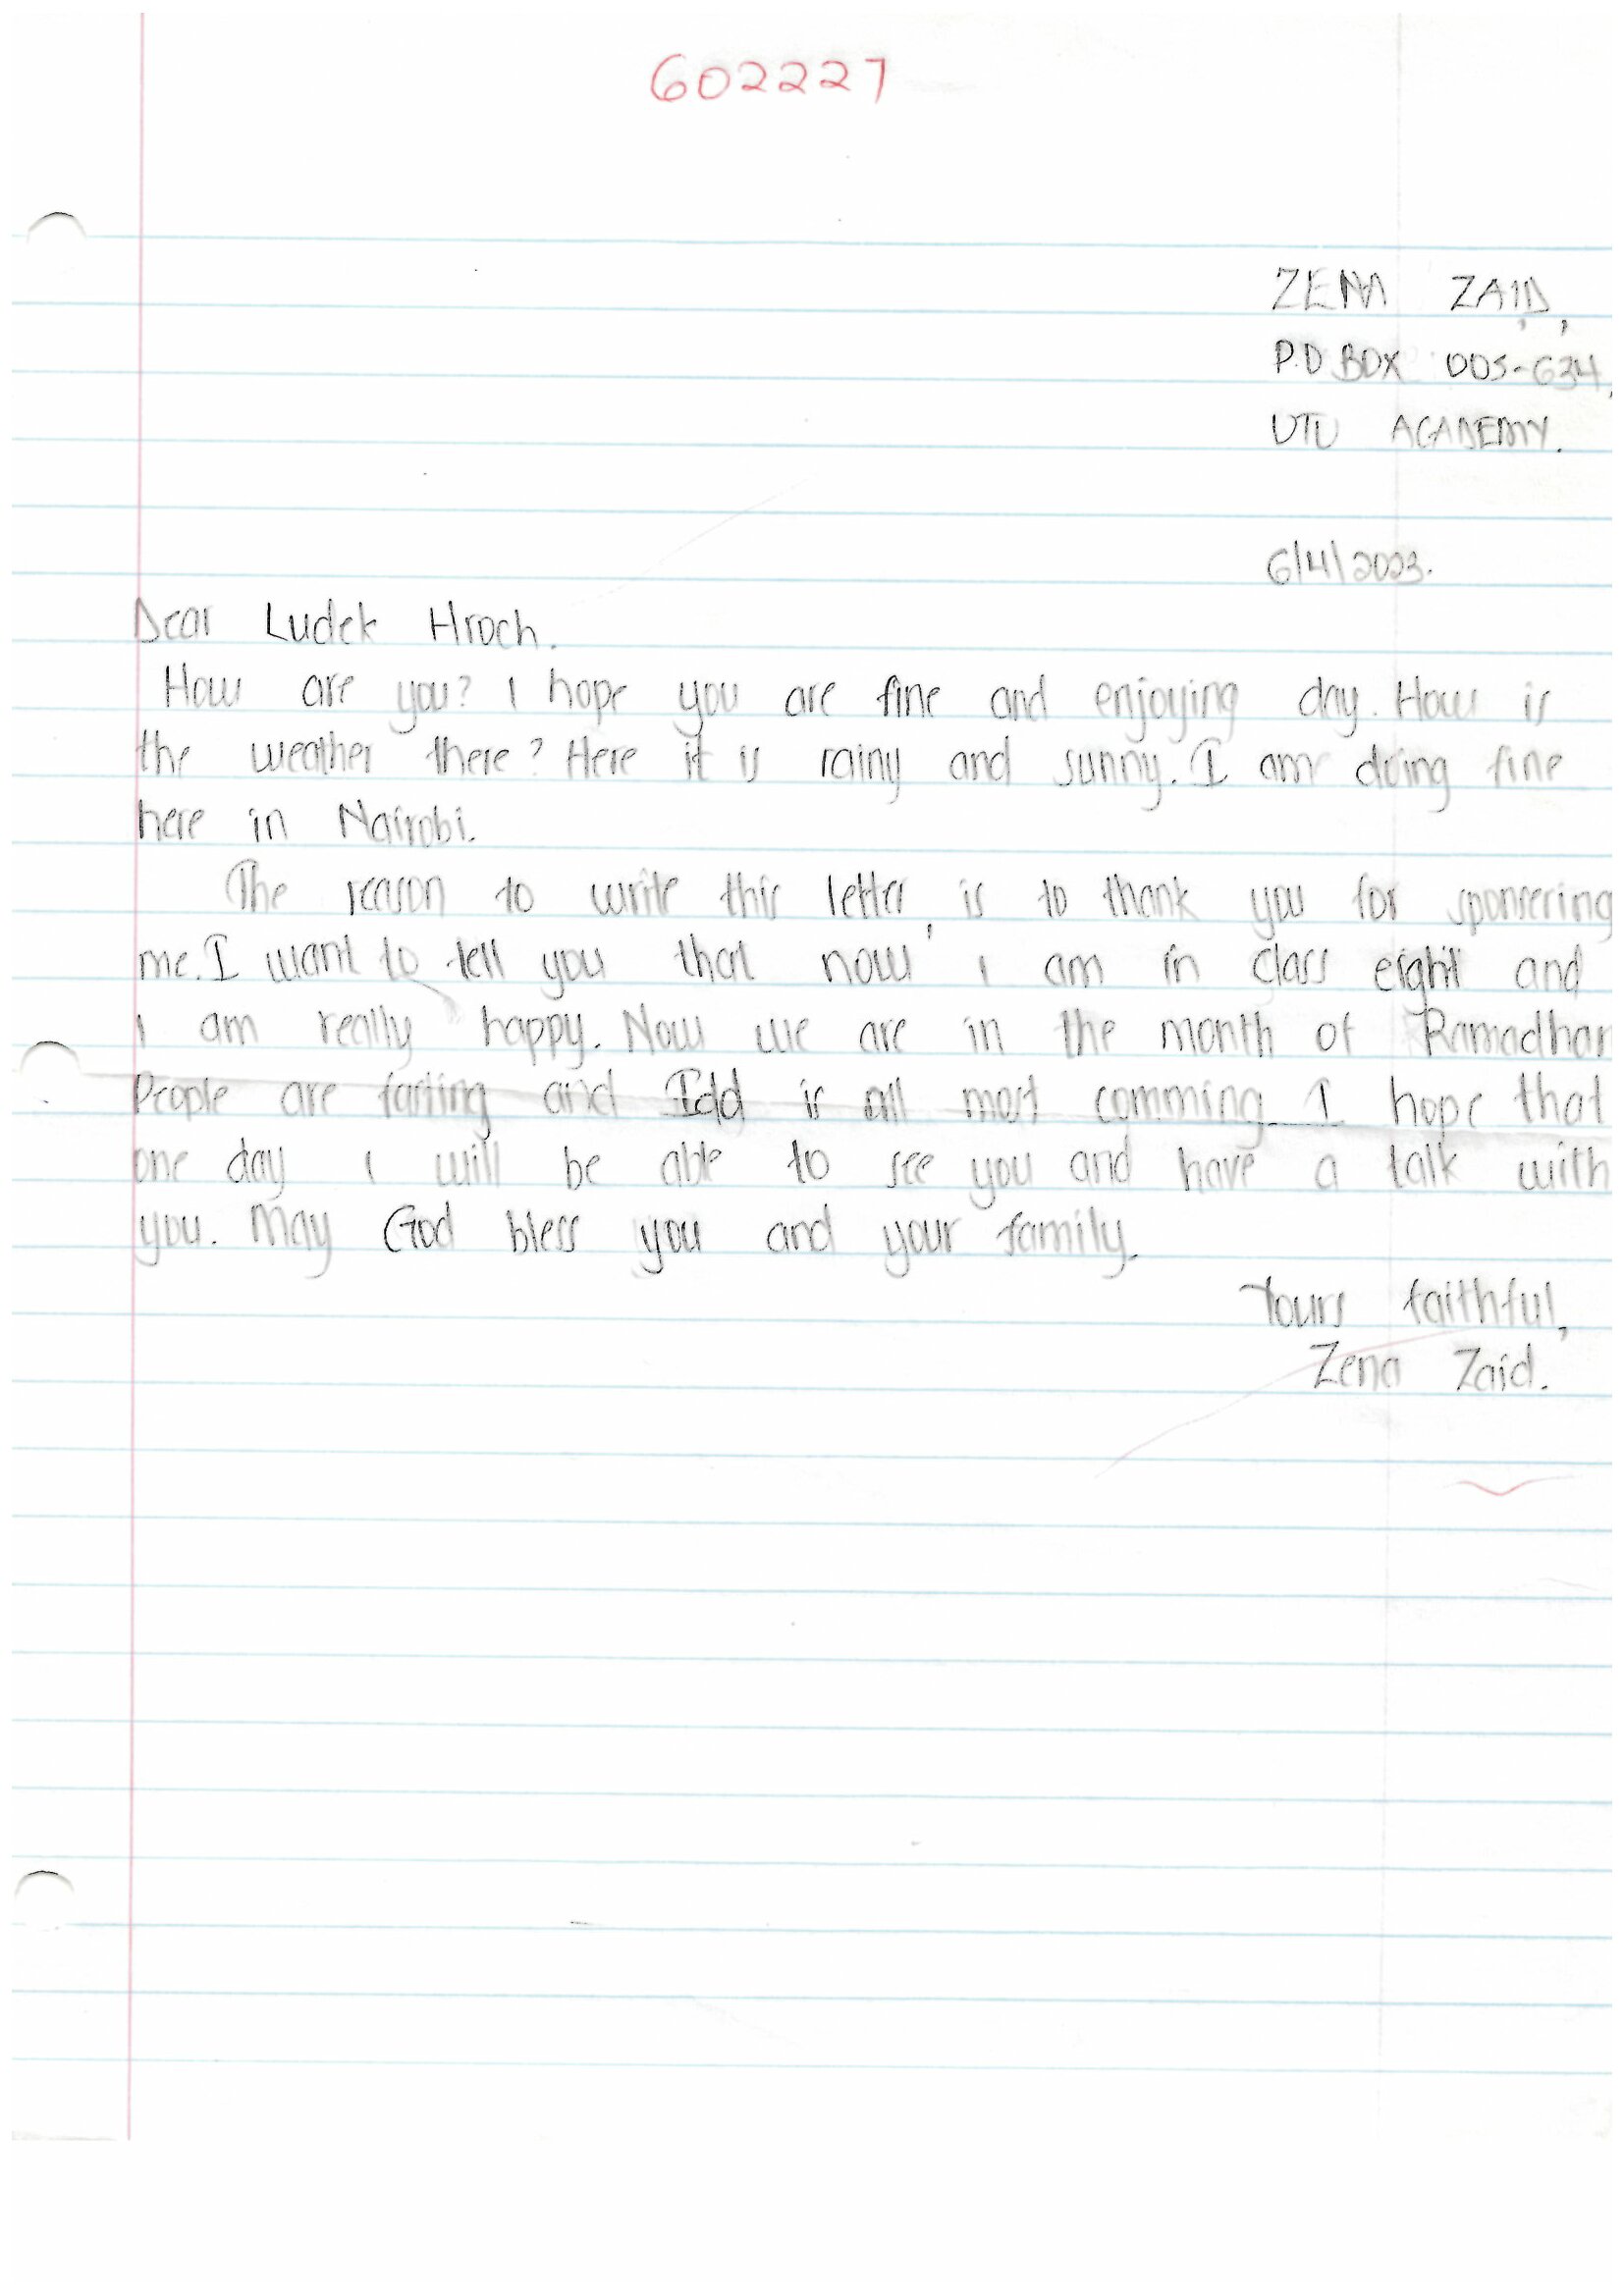 602227
ZENA ZAID,
P.O BOX 005-634,
UTU ACADEMY.
6/4/2023.
Dear Ludek Hroch.
How are you? I hope you are fine and enjoying day. How is
the weather there? Here it is rainy and sunny. I am doing fine
here in Nairobi.
The reason to write this letter, is to thank you for sponsering
me. I want to tell you that now i am in class eight and
I am really happy. Now we are in the month of Ramadhan
People are fasting and Idd is all most comming. I hope that
one day i will be able to see you and have a talk with
you. May God bless you and your family.
Yours faithful,
Zena Zaid.